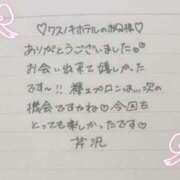 ♡ワスノキホテルのお兄様♡
ありがとうございました♡
お会い出来て嬉しかった
です〜!! 裸エプロンは...次の
機会ですかね♡今回も
とっても楽しかったです♡
芹沢